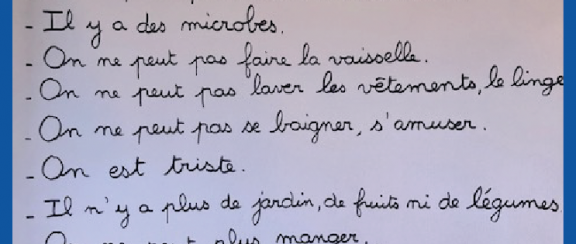 - Il y a des microbes.
- On ne peut pas faire la vaisselle.
- On ne peut pas laver les vêtements, le linge
- On ne peut pas se baigner, s'amuser.
- On est triste.
- Il n'y a plus de jardin, de fruits ni de légumes.
plus manger.